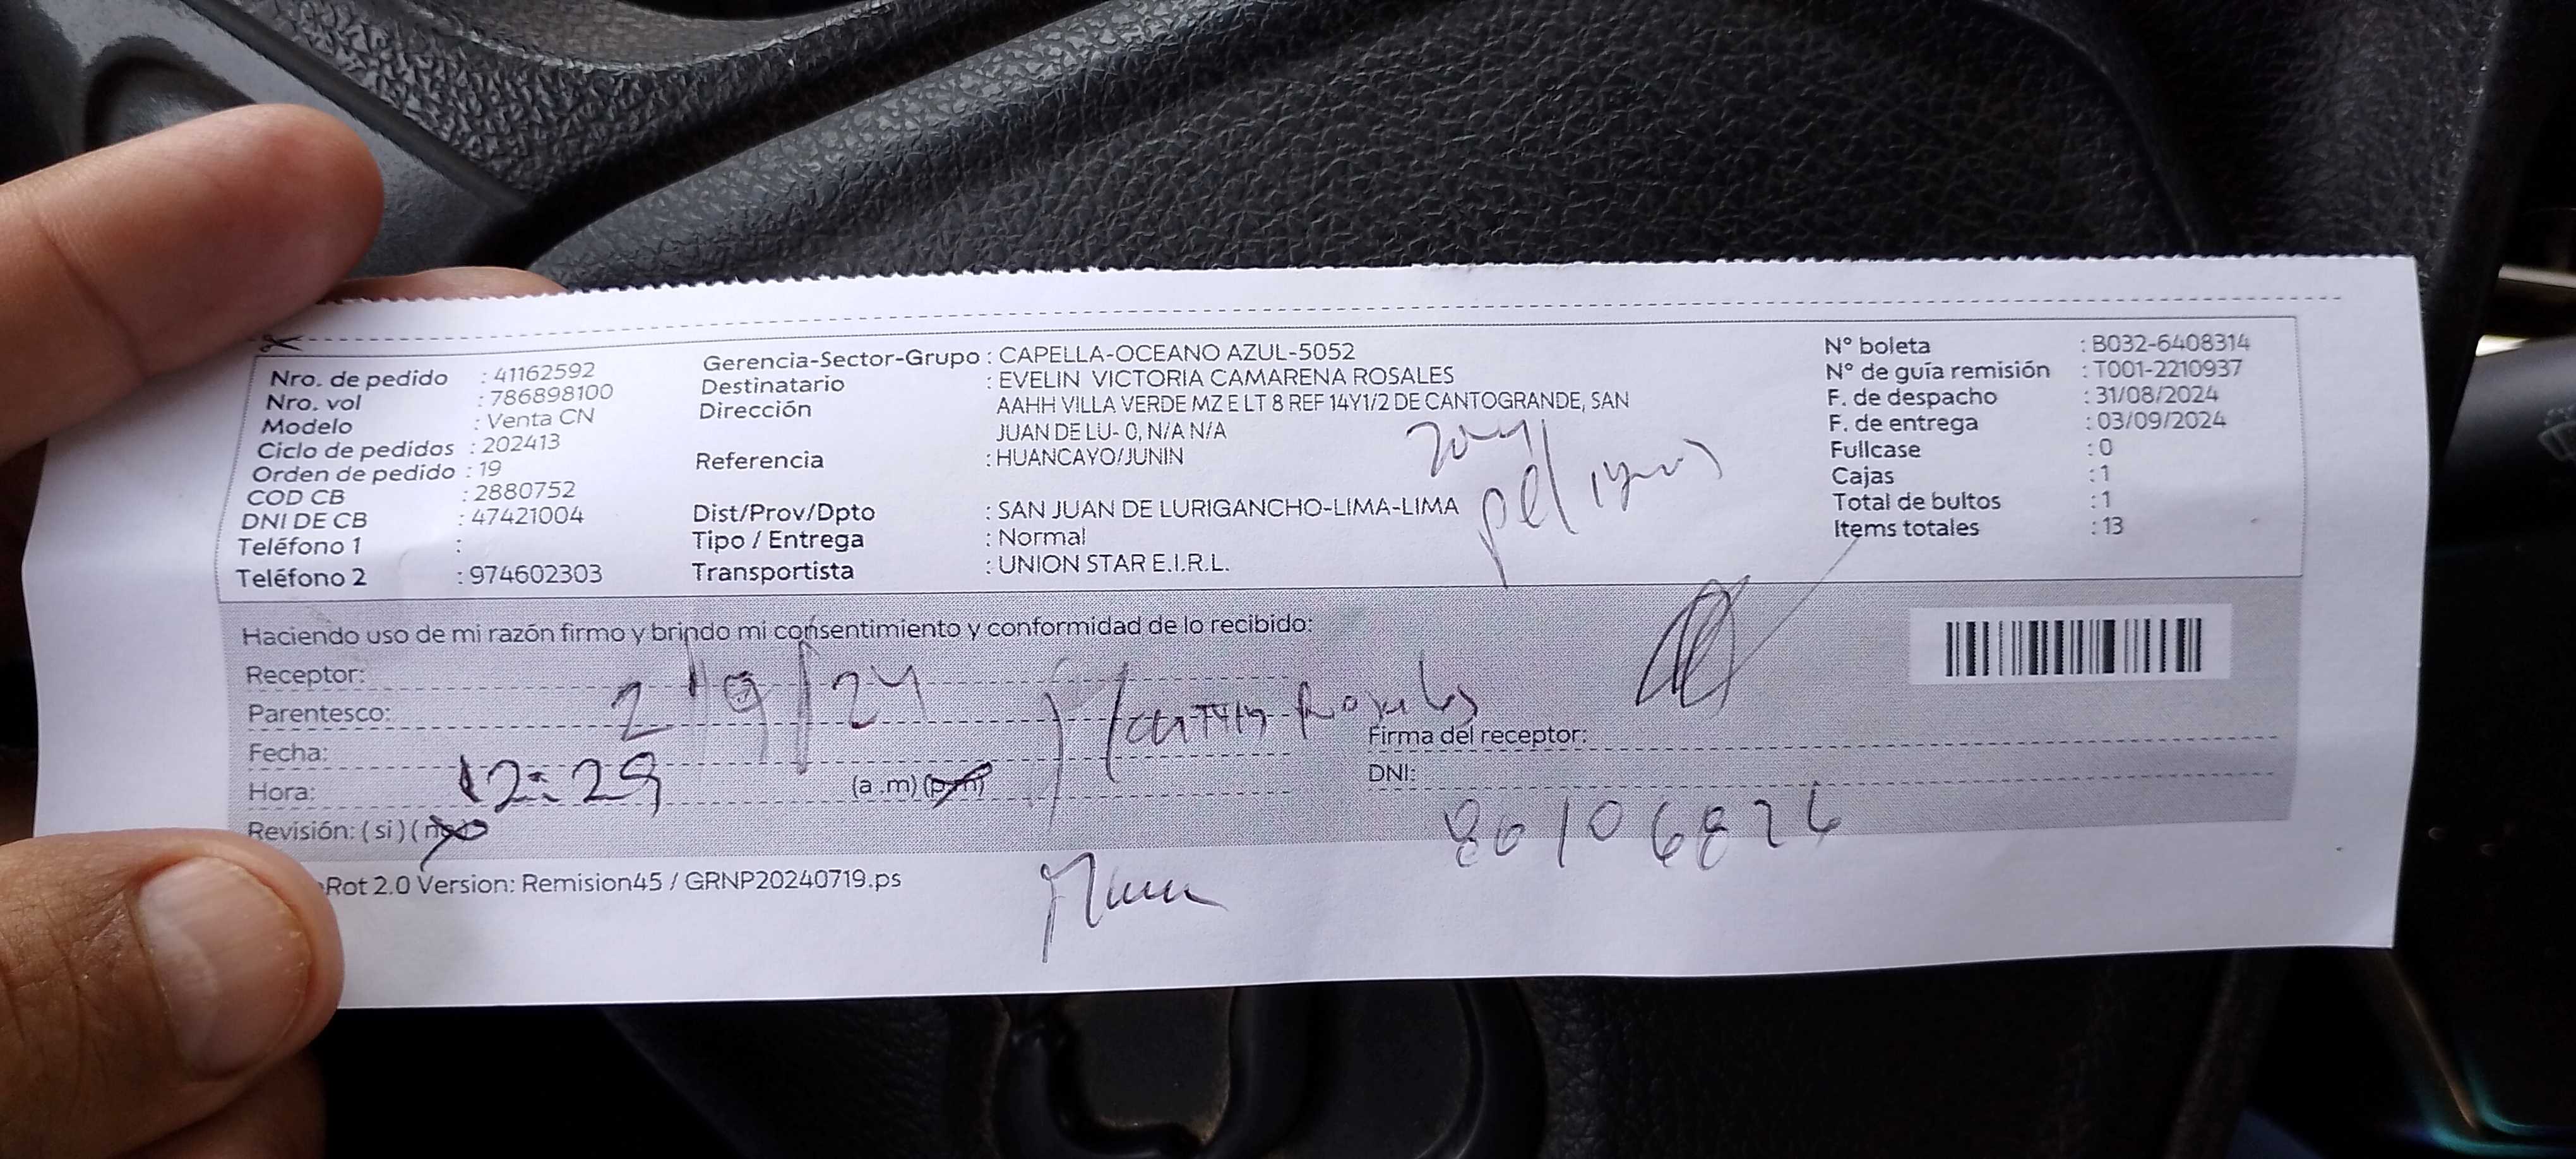 Nro. de pedido : 41162592
Nro. vol : 786898100
Modelo : Venta CN
Ciclo de pedidos : 202413
Orden de pedido : 19
COD CB : 2880752
DNI DE CB : 47421004
Teléfono 1 :
Teléfono 2 : 974602303
Gerencia-Sector-Grupo : CAPELLA-OCEANO AZUL-5052
Destinatario : EVELIN VICTORIA CAMARENA ROSALES
Dirección : AAHH VILLA VERDE MZ E LT 8 REF 14Y1/2 DE CANTOGRANDE, SAN
JUAN DE LU- 0, N/A N/A
Referencia : HUANCAYO/JUNIN
Dist/Prov/Dpto : SAN JUAN DE LURIGANCHO-LIMA-LIMA
Tipo / Entrega : Normal
Transportista : UNION STAR E.I.R.L.
N° boleta : B032-6408314
N° de guía remisión : T001-2210937
F. de despacho : 31/08/2024
F. de entrega : 03/09/2024
Fullcase : 0
Cajas : 1
Total de bultos : 1
Items totales : 13
Haciendo uso de mi razón firmo y brindo mi consentimiento y conformidad de lo recibido:
Receptor:
Parentesco: 2/9/24 Rosales
Fecha:
Firma del receptor:
Hora: 12:29 (a .m) (p.m)
DNI: 80106826
Revisión: ( si ) ( no )
Rot 2.0 Version: Remision45 / GRNP20240719.ps